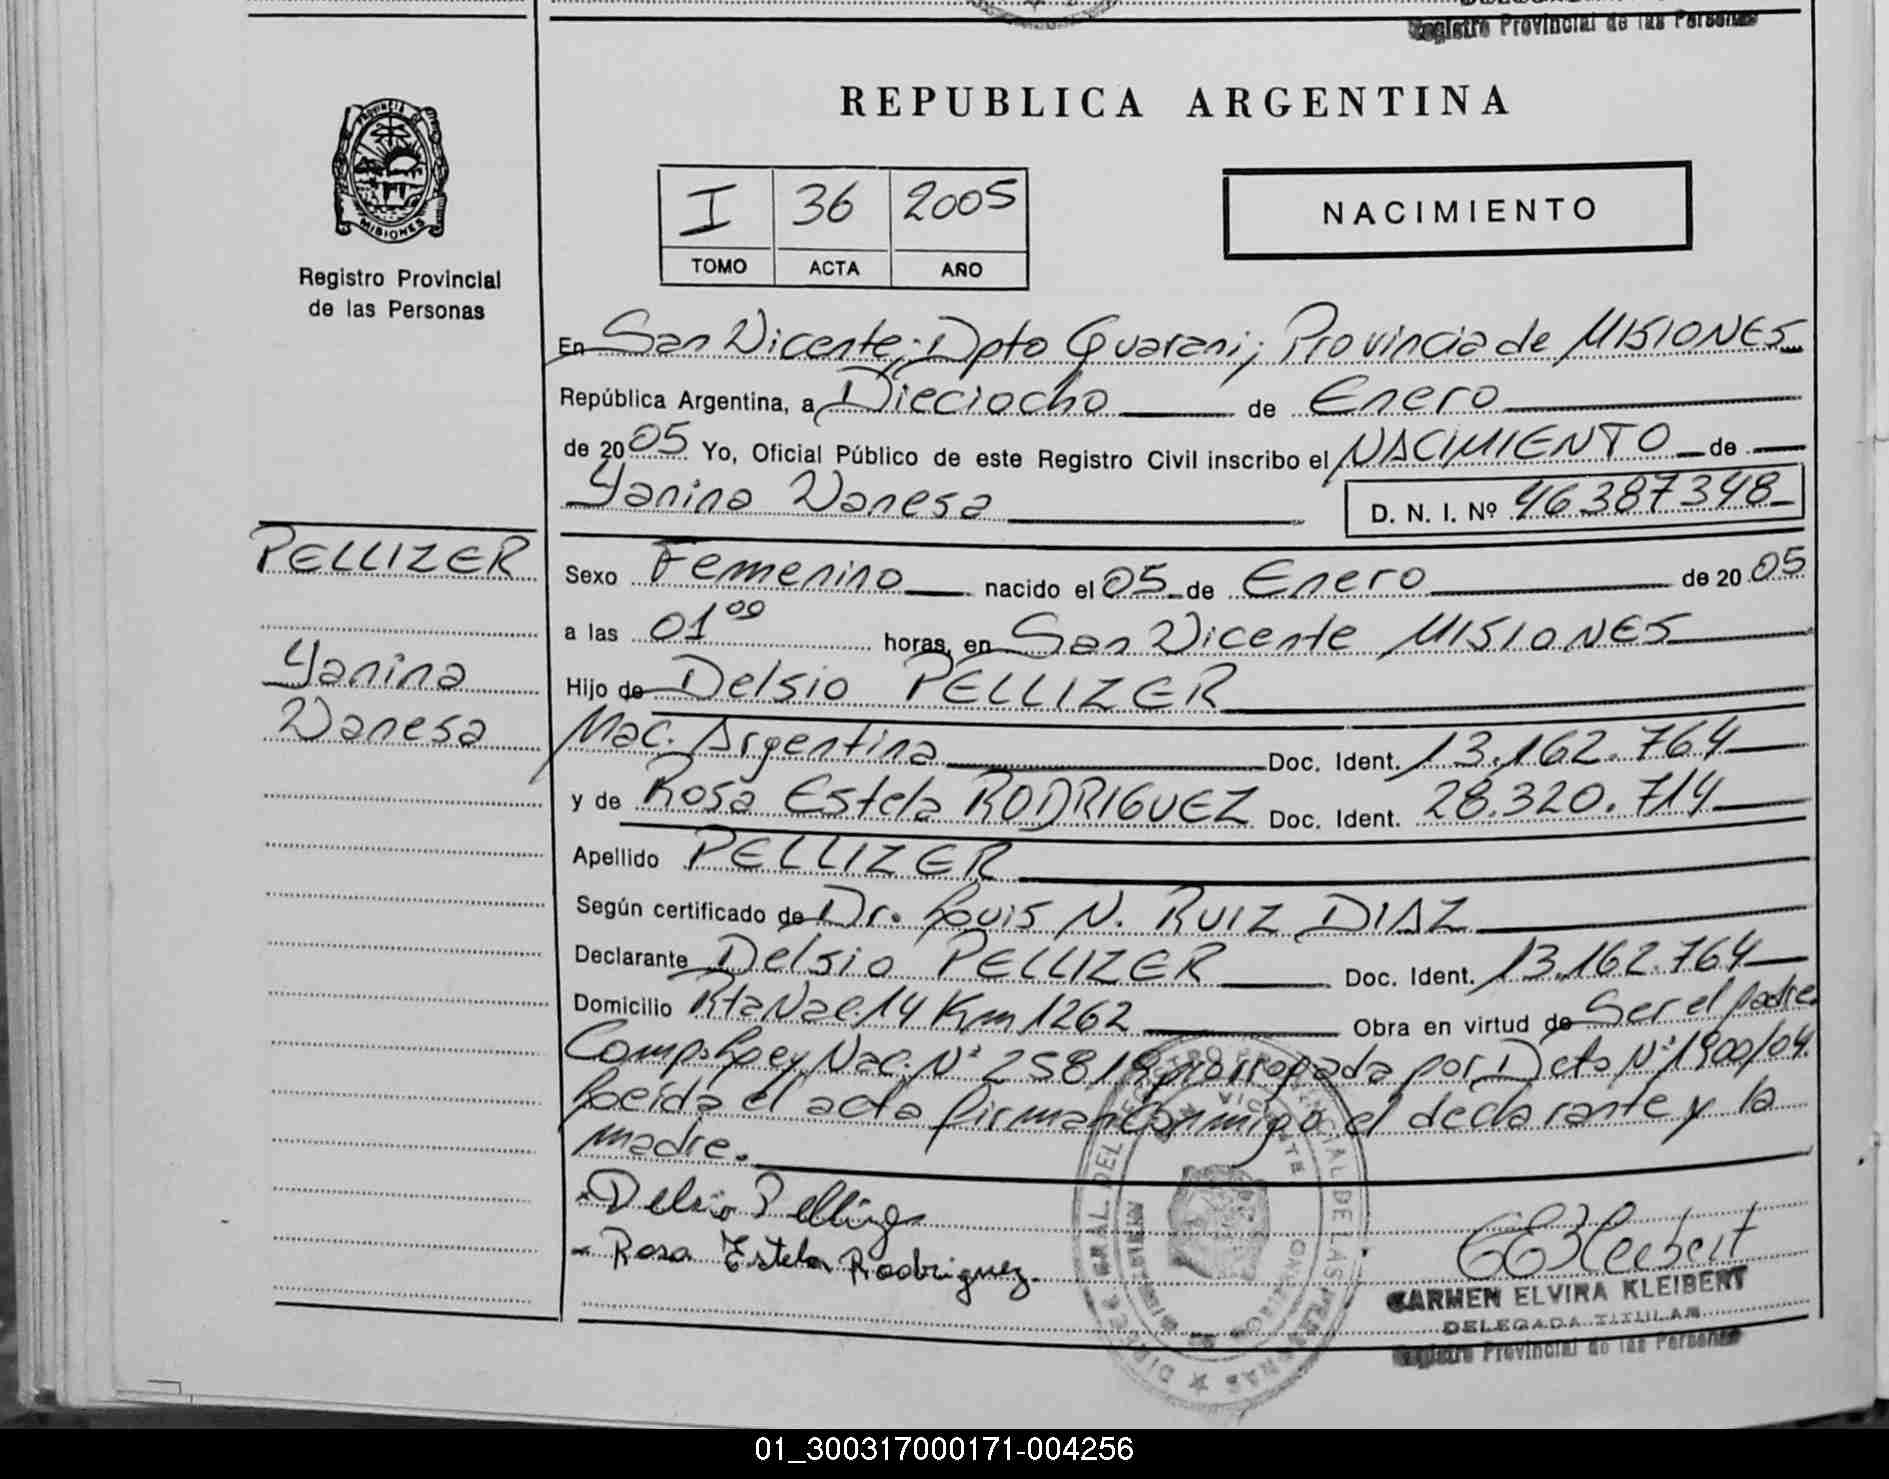 Registro Provincial de las Personas
REPUBLICA ARGENTINA
PROVINCIA DE
MISIONES
Registro Provincial
de las Personas
I 36 2005
TOMO ACTA AÑO
NACIMIENTO
En San Vicente; Dpto Guarani; Provincia de MISIONES
República Argentina, a Dieciocho de Enero
de 2005 Yo, Oficial Público de este Registro Civil inscribo el NACIMIENTO de
Yanina Vanesa D. N. I. Nº 46387348
PELLIZER
Yanina
Vanesa
Sexo Femenino nacido el 05 de Enero de 2005
a las 01⁰⁰ horas, en San Vicente MISIONES
Hijo de Delsio PELLIZER
Nac. Argentina Doc. Ident. 13.162.764
y de Rosa Estela RODRIGUEZ Doc. Ident. 28.320.714
Apellido PELLIZER
Según certificado de Dr. Louis N. RUIZ DIAZ
Declarante Delsio PELLIZER Doc. Ident. 13.162.764
Domicilio Rta Nac. 14 Km 1262 Obra en virtud de Ser el padre
Comp. Ley Nac. Nº 25819 prorrogada por Dcto Nº 1900/04.
Leída el acta firman conmigo el declarante y la
madre.
Delsio Pellizer
Rosa Estela Rodriguez
CEKleibert
CARMEN ELVIRA KLEIBERT
DELEGADA TITULAR
Registro Provincial de las Personas
01_300317000171-004256